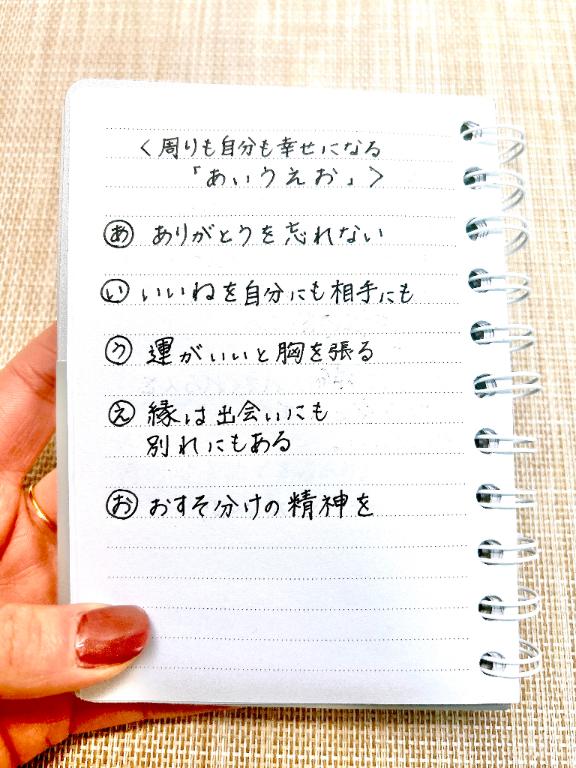 <周りも自分も幸せになる
「あいうえお」>
あ ありがとうを忘れない
い いいねを自分にも相手にも
う 運がいいと胸を張る
え 縁は出会いにも
別れにもある
お おすそ分けの精神を